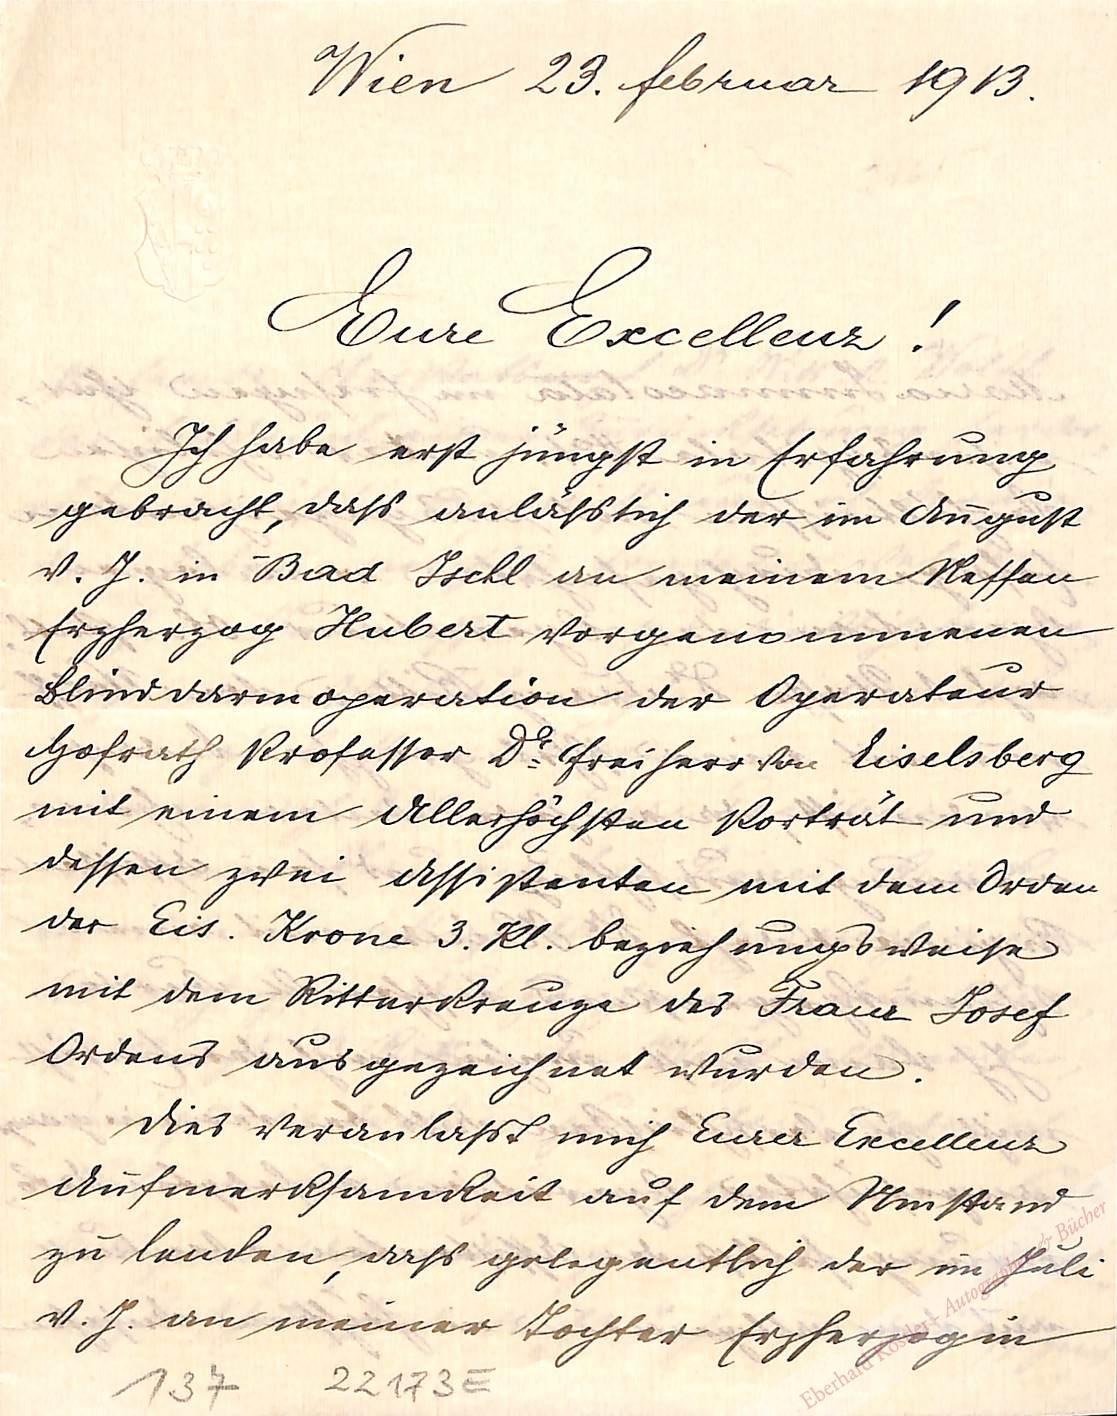 Wien 23. Februar 1913.
Eure Excellenz!
Ich habe erst jüngst in Erfahrung
gebracht, dass anlässlich der im August
v. J. in Bad Ischl an meinem Neffen
Erzherzog Hubert vorgenommenen
Blinddarmoperation der Operateur
Hofrath Professor Dr. Freiherr von Eiselsberg
mit einem Allerhöchsten Porträt und
dessen zwei Assistenten mit dem Orden
der Eis. Krone 3. Kl. beziehungsweise
mit dem Ritterkreuze des Franz Josef
Ordens ausgezeichnet wurden.
Dies veranlasst mich Eurer Excellenz
Aufmerksamkeit auf dem Umstand
zu lenken, dass gelegentlich der im Juli
v. J. an meiner Tochter Erzherzogin
137 22173E
Eberhard Köstler · Autographen & Bücher